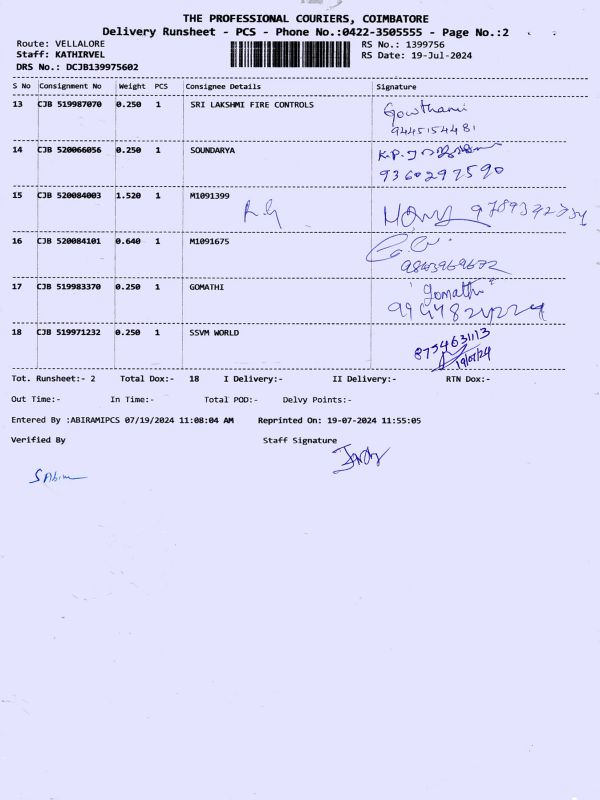 THE PROFESSIONAL COURIERS, COIMBATORE
Delivery Runsheet - PCS - Phone No.:0422-3505555 - Page No.:2
Route: VELLALORE RS No.: 1399756
Staff: KATHIRVEL RS Date: 19-Jul-2024
DRS No.: DCJB139975602
S No Consignment No Weight PCS Consignee Details Signature
13 CJB 519987070 0.250 1 SRI LAKSHMI FIRE CONTROLS Gowthami
9445154481
14 CJB 520066056 0.250 1 SOUNDARYA K.P.
9360297590
15 CJB 520084003 1.520 1 M1091399
16 CJB 520084101 0.640 1 M1091675
9843969672
17 CJB 519983370 0.250 1 GOMATHI "Gomathi"
18 CJB 519971232 0.250 1 SSVM WORLD 8754631113
19/07/24
Tot. Runsheet:- 2 Total Dox:- 18 I Delivery:- II Delivery:- RTN Dox:-
Out Time:- In Time:- Total POD:- Delvy Points:-
Entered By :ABIRAMIPCS 07/19/2024 11:08:04 AM Reprinted On: 19-07-2024 11:55:05
Verified By Staff Signature